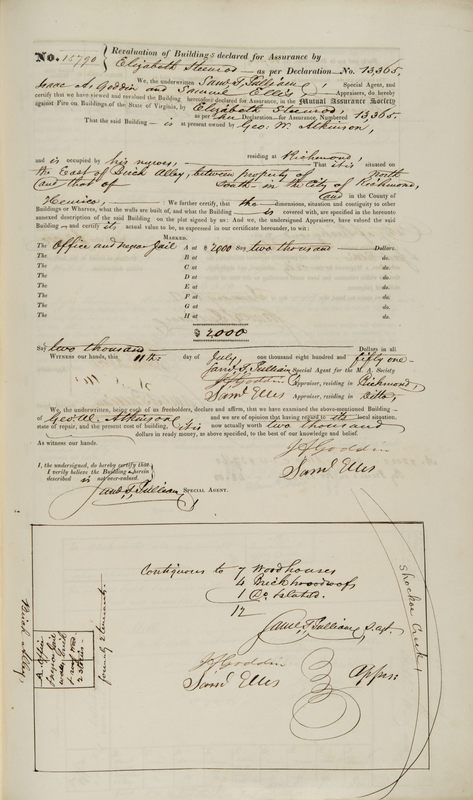 No. 15790 Revaluation of Buildings declared for Assurance by
Elizabeth Stenrod — as per Declaration No. 13,365.
We, the underwritten Saml. T. Pulliam, Special Agent, and
Isaac A. Goddin and Samuel Ellis Appraisers, do hereby
certify that we have viewed and revalued the Building hereinafter declared for Assurance, in the Mutual Assurance Society
against Fire on Buildings of the State of Virginia, by Elizabeth Stenrod,
as per the Declaration for Assurance, Numbered 13,365.
That the said Building — is at present owned by Geo. W. Atkinson,
and is occupied by his negroes, residing at Richmond, That it is situated on
the East of Brick Alley, between property of North
and that of South — in the City of Richmond,
and in the County of
Henrico, We further certify, that the — dimensions, situation and contiguity to other
Buildings or Wharves, what the walls are built of, and what the Building — is covered with, are specified in the hereunto
annexed description of the said Building on the plat signed by us: And we, the undersigned Appraisers, have valued the said
Building — and certify its actual value to be, as expressed in our certificate hereunder, to wit:
MARKED.
The Office and negro Jail A at $ 2000 Say two thousand Dollars.
The B at do.
The C at do.
The D at do.
The E at do.
The F at do.
The G at do.
The H at do.
$ 2,000
Say two thousand Dollars in all
Witness our hands, this 11th day of July, one thousand eight hundred and fifty one
Saml. T. Pulliam Special Agent for the M. A. Society
Goddin Appraiser, residing in Richmond,
Saml. Ellis Appraiser, residing in Ditto,
We, the underwritten, being each of us freeholders, declare and affirm, that we have examined the above-mentioned Building —
of Geo. W. Atkinson and we are of opinion that having regard to its local situation,
state of repair, and the present cost of building, it is now actually worth two thousand
dollars in ready money, as above specified, to the best of our knowledge and belief.
As witness our hands.
Goddin
Saml. Ellis
I, the undersigned, do hereby certify that
I verily believe the Building wherein
described is not over-valued.
Saml. T. Pulliam SPECIAL AGENT.
Contiguous to 7 Wood houses
4 Brick woodroofs
1 Do. slated.
12
Saml. T. Pulliam S. Agt.
Goddin
Saml. Ellis Apprs:
Shockoe Creek
Brick Alley
A. Office
Negro Jail
walls Brick
2 stories
formerly 2 tenements